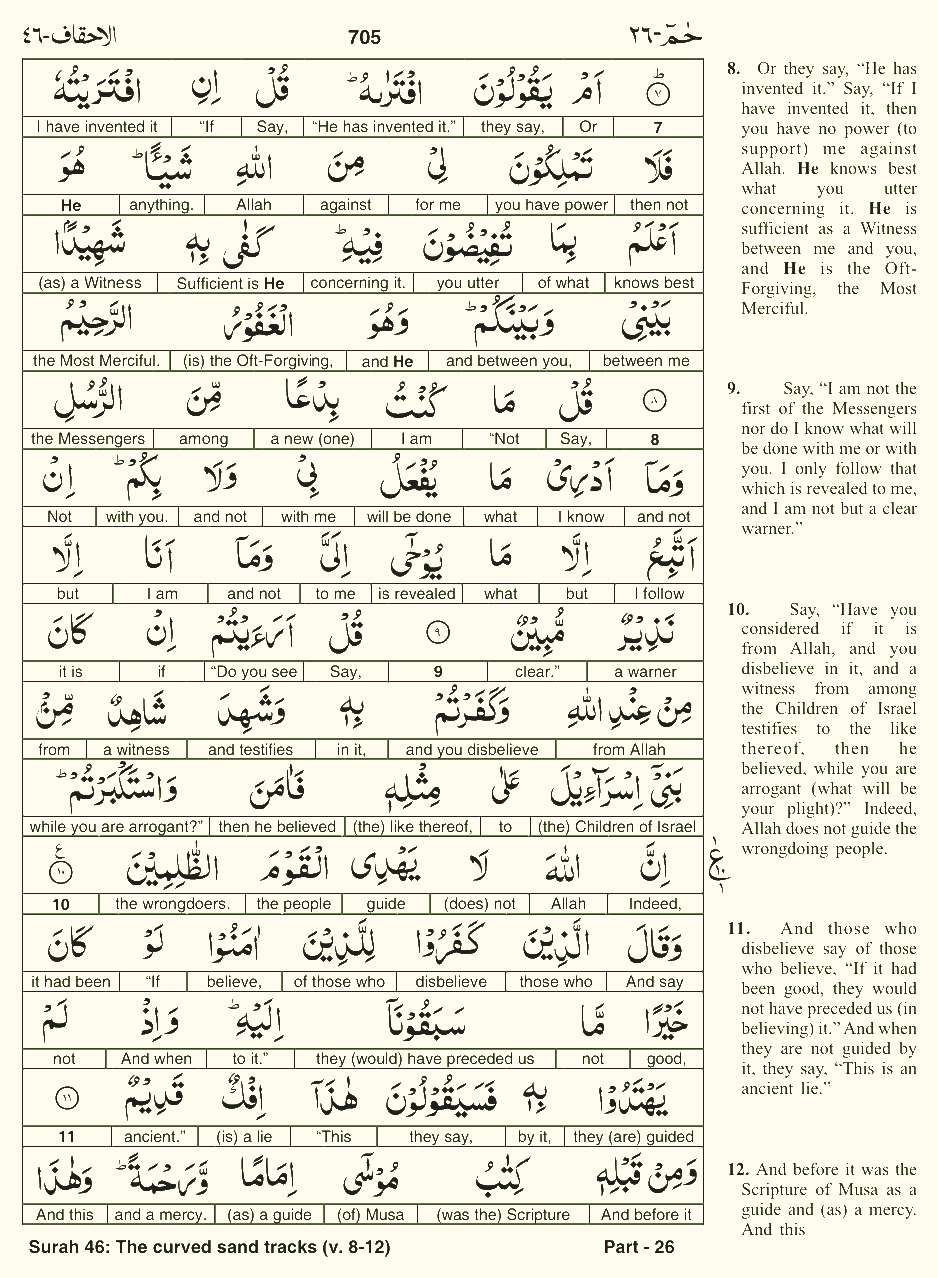 الاحقاف-٤٦ 705 حٰمٓ-٢٦
٧ اَمْ يَقُوْلُوْنَ افْتَرٰىهُ ؕ قُلْ اِنِ افْتَرَيْتُهٗ
I have invented it "If Say, "He has invented it." they say, Or 7
فَلَا تَمْلِكُوْنَ لِيْ مِنَ اللّٰهِ شَيْـًٔا ؕ هُوَ
He anything. Allah against for me you have power then not
اَعْلَمُ بِمَا تُفِيْضُوْنَ فِيْهِ ؕ كَفٰى بِهٖ شَهِيْدًۢا
(as) a Witness Sufficient is He concerning it. you utter of what knows best
بَيْنِيْ وَبَيْنَكُمْ ؕ وَهُوَ الْغَفُوْرُ الرَّحِيْمُ
the Most Merciful. (is) the Oft-Forgiving, and He and between you, between me
٨ قُلْ مَا كُنْتُ بِدْعًا مِّنَ الرُّسُلِ
the Messengers among a new (one) I am "Not Say, 8
وَمَاۤ اَدْرِيْ مَا يُفْعَلُ بِيْ وَلَا بِكُمْ ؕ اِنْ
Not with you. and not with me will be done what I know and not
اَتَّبِعُ اِلَّا مَا يُوْحٰۤى اِلَيَّ وَمَاۤ اَنَا اِلَّا
but I am and not to me is revealed what but I follow
نَذِيْرٌ مُّبِيْنٌ ٩ قُلْ اَرَءَيْتُمْ اِنْ كَانَ
it is if "Do you see Say, 9 clear." a warner
مِنْ عِنْدِ اللّٰهِ وَكَفَرْتُمْ بِهٖ وَشَهِدَ شَاهِدٌ مِّنْۢ
from a witness and testifies in it, and you disbelieve from Allah
بَنِيْۤ اِسْرَآءِيْلَ عَلٰى مِثْلِهٖ فَاٰمَنَ وَاسْتَكْبَرْتُمْ ؕ
while you are arrogant?" then he believed (the) like thereof, to (the) Children of Israel
اِنَّ اللّٰهَ لَا يَهْدِى الْقَوْمَ الظّٰلِمِيْنَ ١٠
10 the wrongdoers. the people guide (does) not Allah Indeed,
وَقَالَ الَّذِيْنَ كَفَرُوْا لِلَّذِيْنَ اٰمَنُوْا لَوْ كَانَ
it had been "If believe, of those who disbelieve those who And say
خَيْرًا مَّا سَبَقُوْنَاۤ اِلَيْهِ ؕ وَاِذْ لَمْ
not And when to it." they (would) have preceded us not good,
يَهْتَدُوْا بِهٖ فَسَيَقُوْلُوْنَ هٰذَاۤ اِفْكٌ قَدِيْمٌ ١١
11 ancient." (is) a lie "This they say, by it, they (are) guided
وَمِنْ قَبْلِهٖ كِتٰبُ مُوْسٰۤى اِمَامًا وَّرَحْمَةً ؕ وَهٰذَا
And this and a mercy. (as) a guide (of) Musa (was the) Scripture And before it
Surah 46: The curved sand tracks (v. 8-12) Part - 26
8. Or they say, "He has
invented it." Say, "If I
have invented it, then
you have no power (to
support) me against
Allah. He knows best
what you utter
concerning it. He is
sufficient as a Witness
between me and you,
and He is the Oft-
Forgiving, the Most
Merciful.
9. Say, "I am not the
first of the Messengers
nor do I know what will
be done with me or with
you. I only follow that
which is revealed to me,
and I am not but a clear
warner."
10. Say, "Have you
considered if it is
from Allah, and you
disbelieve in it, and a
witness from among
the Children of Israel
testifies to the like
thereof, then he
believed, while you are
arrogant (what will be
your plight)?" Indeed,
Allah does not guide the
wrongdoing people.
11. And those who
disbelieve say of those
who believe, "If it had
been good, they would
not have preceded us (in
believing) it." And when
they are not guided by
it, they say, "This is an
ancient lie."
12. And before it was the
Scripture of Musa as a
guide and (as) a mercy.
And this